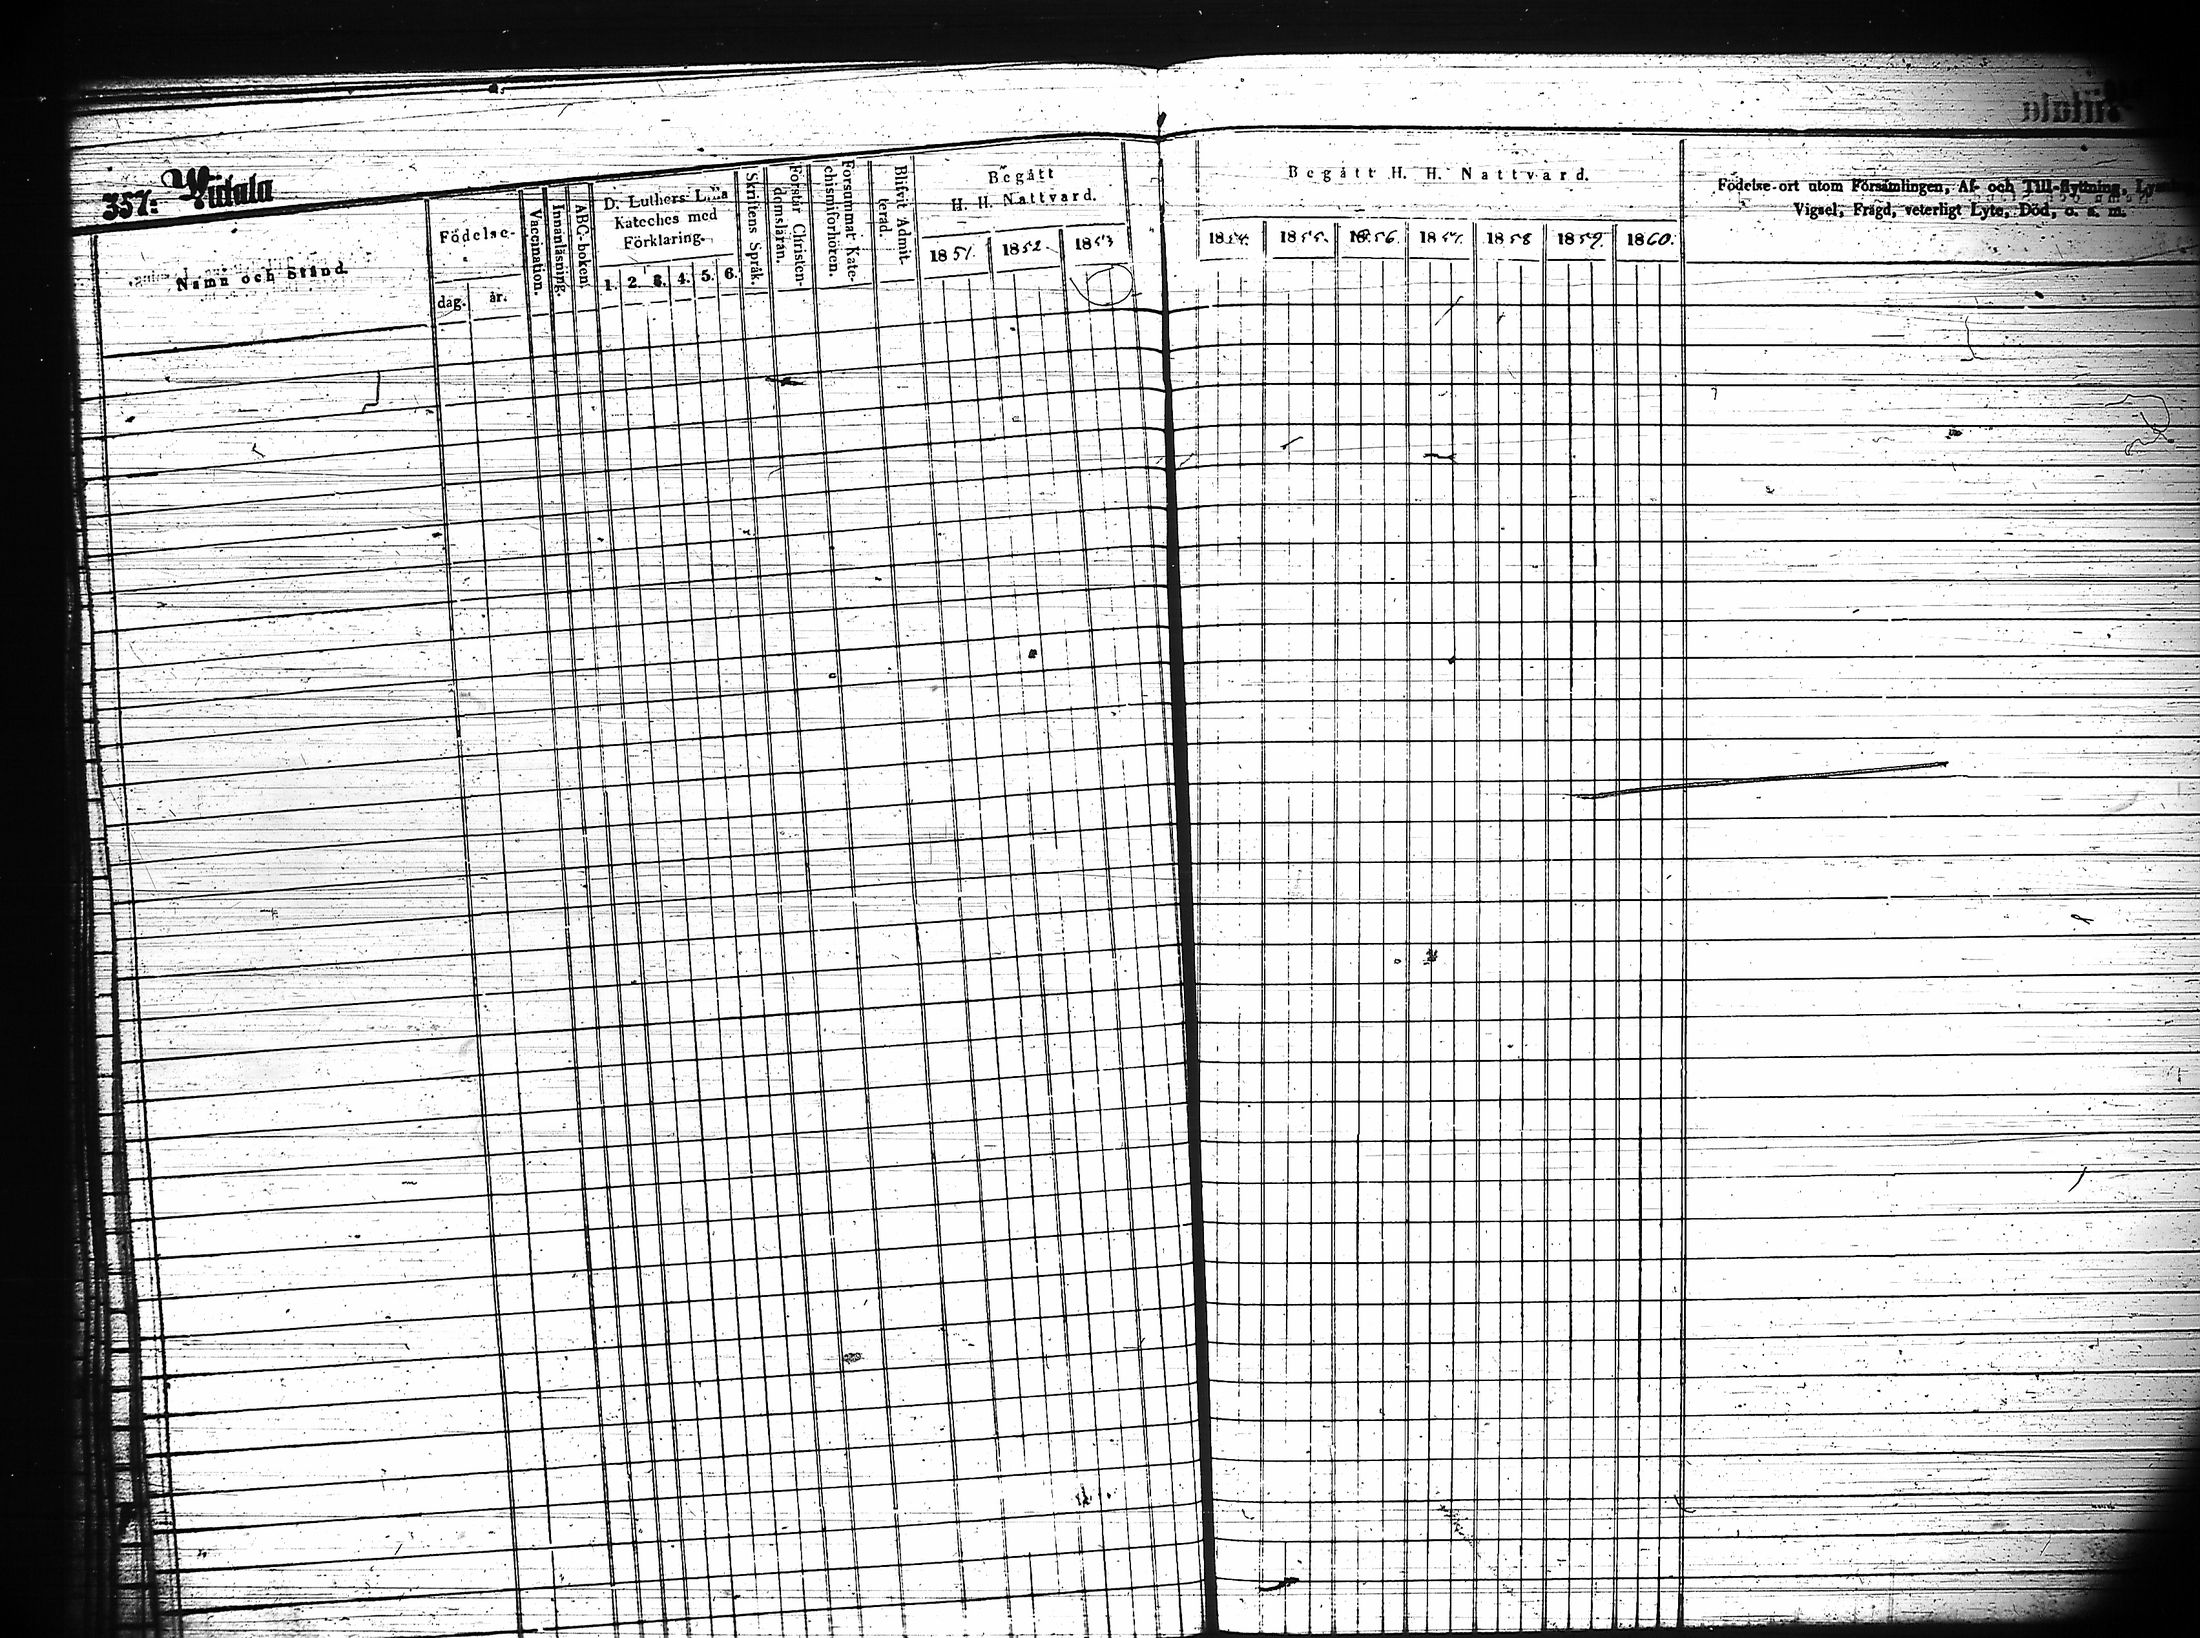 357: Viitala
Namn och Stånd.
Födelse-
dag. år.
Vaccination.
Innanläsning.
ABC-boken.
D. Luthers Lilla
Kateches med
Förklaring.
1. 2. 3. 4. 5. 6.
Skriftens Språk.
Förstår Christen-
domsläran.
Försummat Kate-
chismiförhören.
Blifvit Admit-
terad.
Begått
H. H. Nattvard.
1851. 1852. 1853
Begått H. H. Nattvard.
1854. 1855. 1856. 1857. 1858 1859. 1860.
Födelse-ort utom Församlingen, Af- och Till-flyttning,
Vigsel, Frägd, veterligt Lyte, Död, o. s. m.